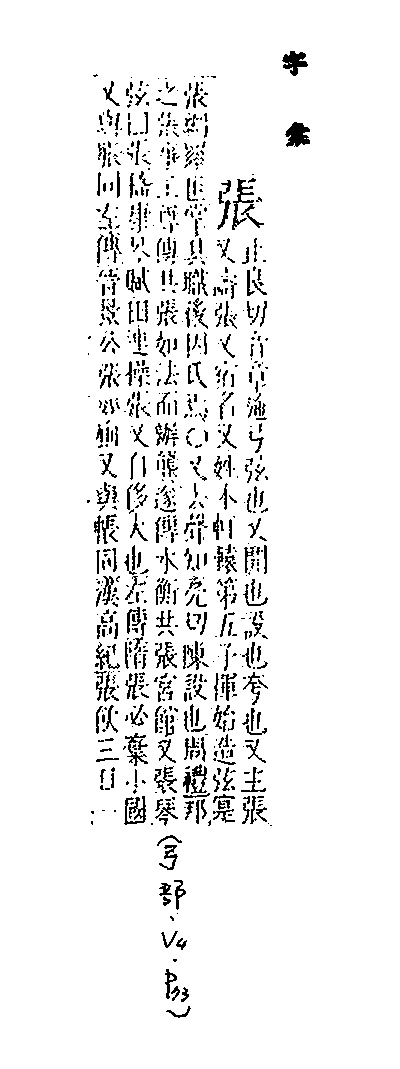 字彙
張
止良切音章施弓弦也又開也設也夸也又主張
又譸張又宿名又姓本軒轅第五子揮始造弦寔
張網羅世掌其職後因氏焉○又去聲知亮切陳設也周禮邦
之張事王尊傳共張如法而辦龔遂傳水衡共張宮館又張琴
弦曰張嵇康琴賦田連操張又自侈大也左傳隋張必棄小國
又與脹同左傳晉景公張如廁又與帳同漢高紀張飲三日一
(弓部、V4.P73)